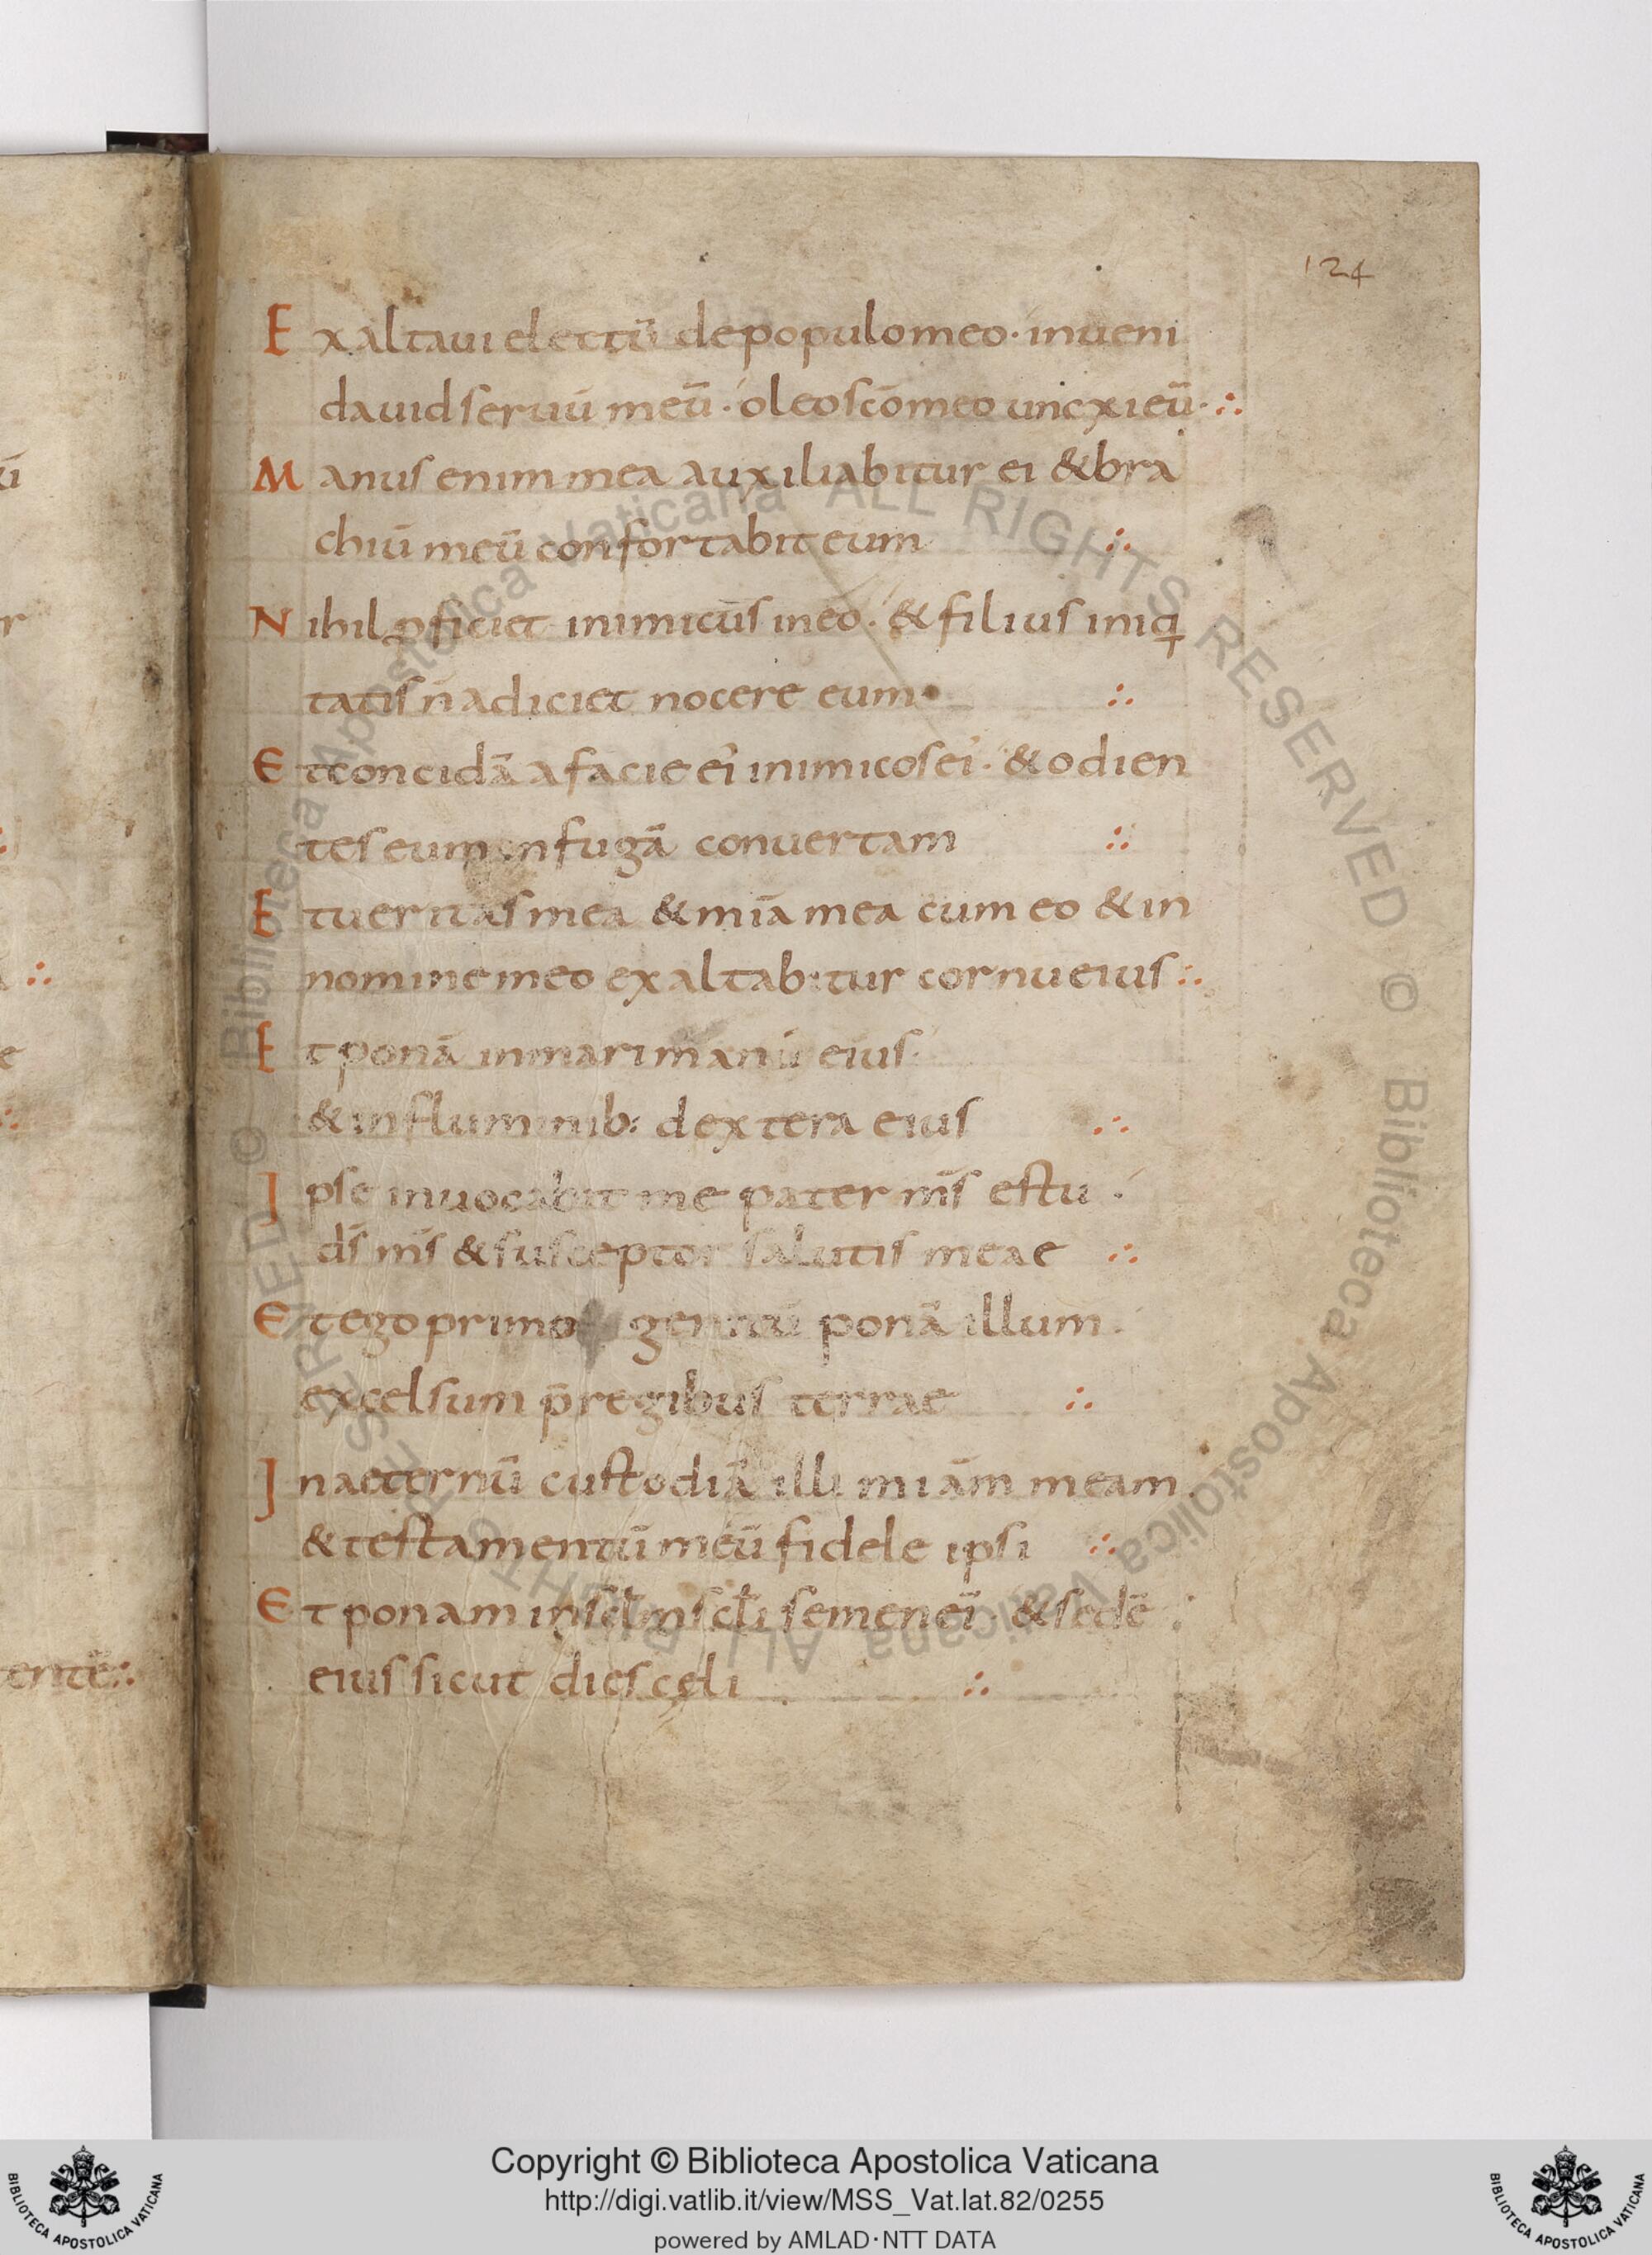 124
Exaltaui electū depopulomeo· inueni
dauidseruū meū· oleoscōmeo uncxieū· ∴
Manus enim mea auxiliabitur ei &bra
chiū meū confortabit eum ∴
Nihil ꝓficiet inimicus ineo· & filius iniq
tatis n̄ adiciet nocere eum· ∴
Etconcidā afacie ei' inimicosei'· &odien
tes eum infugā conuertam ∴
Et ueritas mea &mīa mea cum eo &in
nomine meo exaltabitur cornu eius ∴
Et ponā inmari manū eius·
&influminib: dextera eius ∴
Ipse inuocabit me pater m̄s estu·
d̄s m̄s &susceptor salutis meae ∴
Et ego primo genitū ponā illum·
excelsum p̄regibus terrae ∴
Inaeternū custodiā illi miām meam·
&testamentū meū fidele ipsi ∴
Et ponam insclm scli semenei'· &sedē
eius sicut dies cęli ∴
ū
r
e
entē ∴
© Biblioteca Apostolica Vaticana ALL RIGHTS RESERVED © Biblioteca Apostolica Vaticana ALL RIGHTS RESERVED
Copyright © Biblioteca Apostolica Vaticana
http://digi.vatlib.it/view/MSS_Vat.lat.82/0255
powered by AMLAD·NTT DATA
BIBLIOTECA APOSTOLICA VATICANA
BIBLIOTECA APOSTOLICA VATICANA